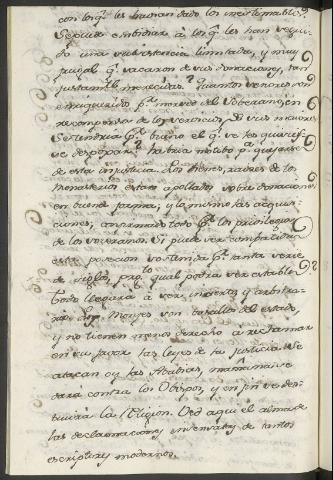 con los q.e les huvieran dado los
Se puede embidiar à los q.e les han veni
do una subsistencia limitada, y muy
frugal q.e sacaron de sus donaciones, tan
justam.te merecidas? Quantos Señores son
enriquecidos p.r merced del Soberano, en
recompensa de los servicios
Se tendria p.r bueno el q.e se les quitase,
se despojara? habria motibo p.a quejarse
de esta injusticia. Los bienes, rentas de los
Monasterios estan apollados sobre donaciones
en buena forma, legitimas adquisi
ciones, confirmado todo p.r los privilegios
de los soveranos. Si puede ser combatida
esta posecion sostenida p.r tanta serie
de siglos, que qual podrà ser estable?
todo llegarà à ser incierto, y arbitra
rio. Los Monges son basallos del estado,
y no tienen menos derecho à reclamar
en su favor las leyes de la justicia. Se
atacan oy las Abadias, mañana se
darà contra los Obispos, y en fin se des
truirà la Religion. Ved aqui el alma de
las declamaciones insensatas de tantos
escriptores modernos.